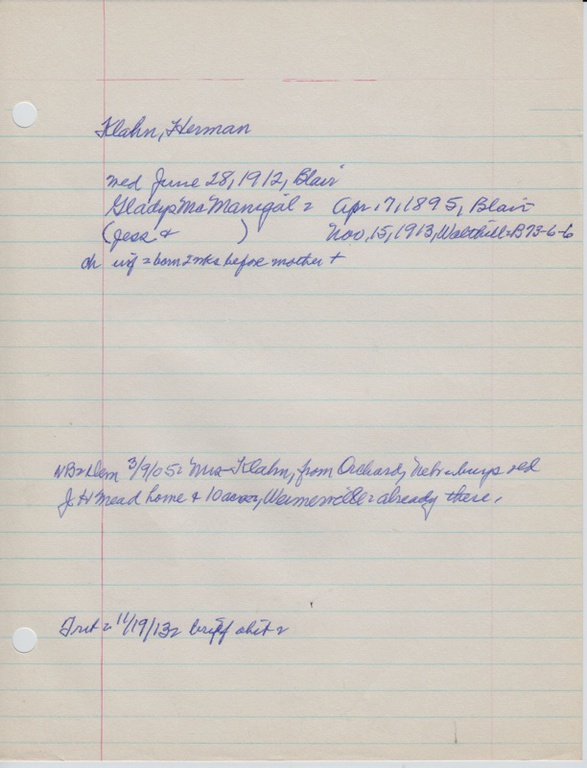 Klahn, Herman
med June 28, 1912, Blair
Gladys McManigal = Apr. 17, 1895, Blair
(Jess + ) Nov. 15, 1913, Walthill = B73-6-6
ch inf = born 2 wks before mother +
3/9/05 = Mrs Klahn, from Orchard, Nebr = buys old
J. H Mead home + 10 acres, = already there.
Trib = 11/19/13 = brief obit =